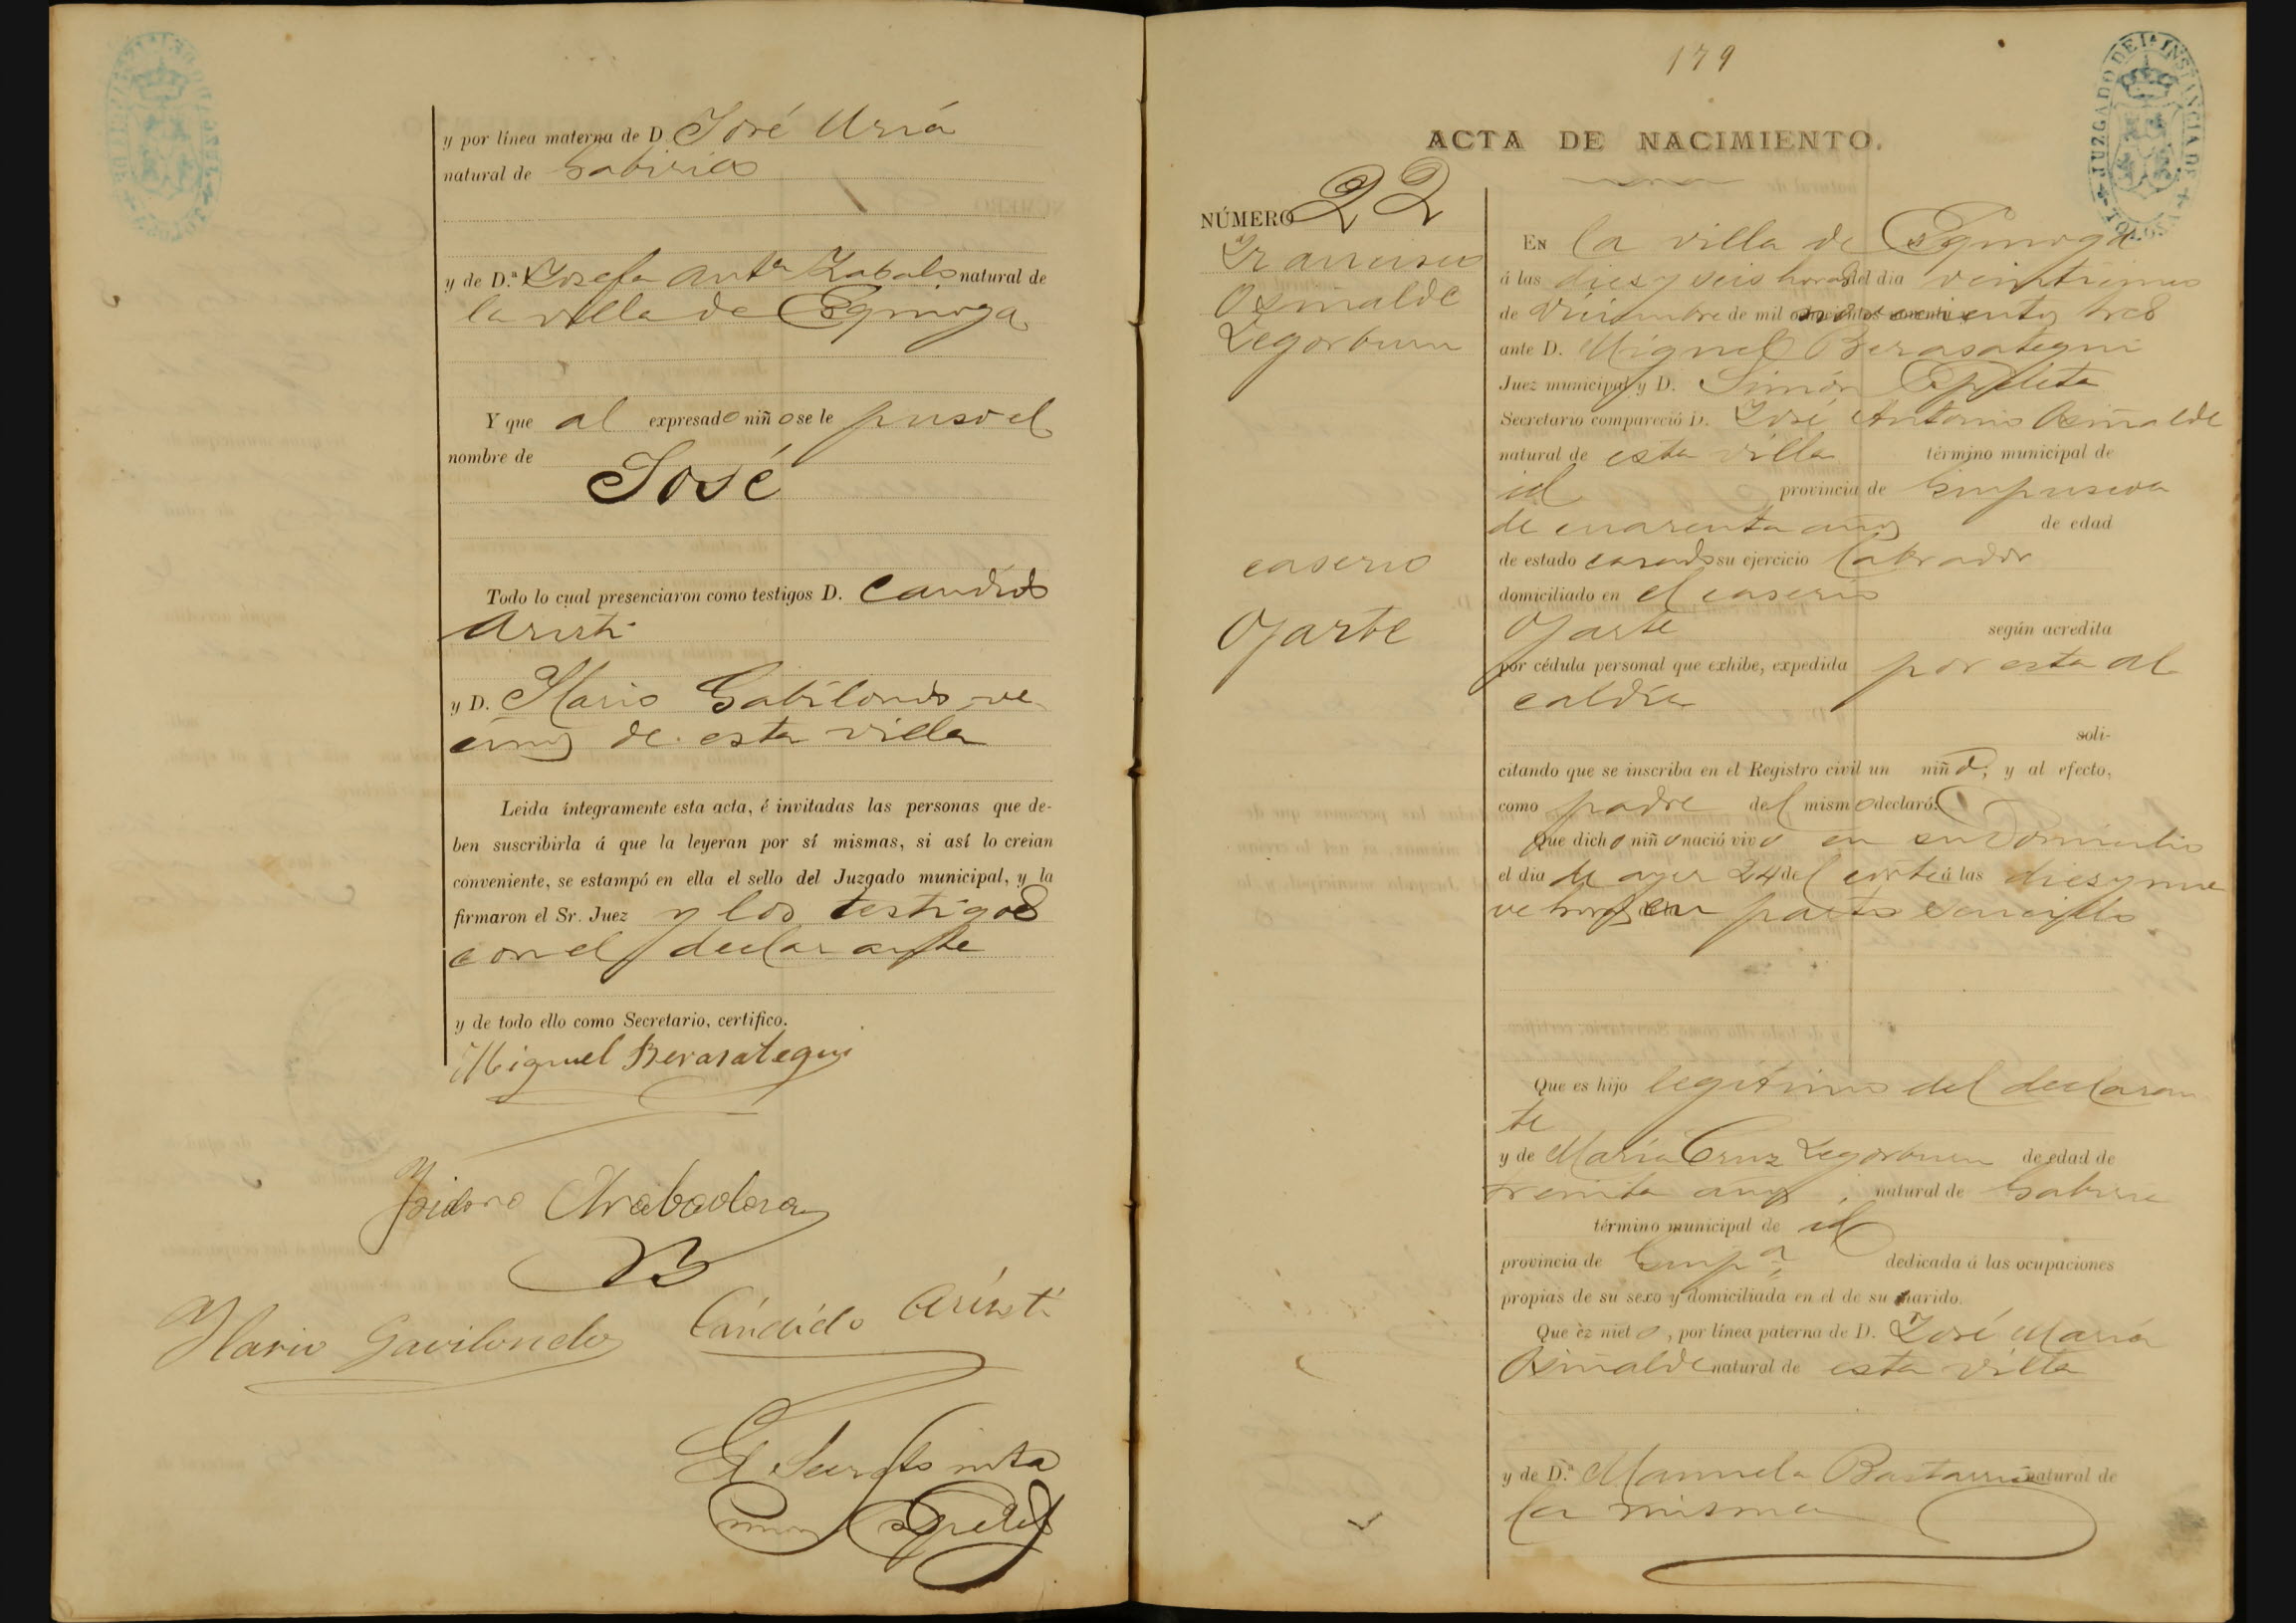 y por línea materna de D. José Urría
natural de Gabiria
y de D.ª Josefa Antª Zabalo natural de
la villa de Ezquioga
Y que al expresado niño se le puso el
nombre de
José
Todo lo cual presenciaron como testigos D. Candido
Aristi
y D. Ilario Gabilondo, ve
cinos de esta villa
Leida íntegramente esta acta, é invitadas las personas que de-
ben suscribirla á que la leyeran por sí mismas, si así lo creian
conveniente, se estampó en ella el sello del Juzgado municipal, y la
firmaron el Sr. Juez y los testigos
con el declarante
y de todo ello como Secretario, certifico.
Miguel Berasategui
Isidoro Arabaolaza
Ilario Gavilondo
Cándido Aristi
El Secretº
Simon Apeleta
179
JUZGADO DE 1ª INSTANCIA DE TOLOSA
ACTA DE NACIMIENTO.
NÚMERO 22
Francisco
Osinalde
Legorburu
caserio
Ojarte
EN la villa de Ezquioga
á las diez y seis horas del dia veinticinco
de Diciembre de mil novecientos tres
ante D. Miguel Berasategui
Juez municipal y D. Simón Apeleta
Secretario compareció D. José Antonio Osiñalde
natural de esta villa término municipal de
id provincia de Guipuzcoa
de cuarenta años de edad
de estado casado su ejercicio labrador
domiciliado en el caserio
Ojarte según acredita
por cédula personal que exhibe, expedida por esta al
caldía
soli-
citando que se inscriba en el Registro civil un niño, y al efecto,
como padre del mismo declaró:
Que dicho niño nació vivo en su domicilio
el dia de ayer 24 del corrte á las diez y nue
ve horas en parto sencillo
Que es hijo legítimo del declaran
te
y de María Cruz Legorburu de edad de
treinta años, natural de Gabiria
término municipal de id
provincia de Guipª dedicada á las ocupaciones
propias de su sexo y domiciliada en el de su marido.
Que es nieto, por línea paterna de D. José María
Osiñalde natural de esta villa
y de D.ª Manuela Bastarrica natural de
la misma